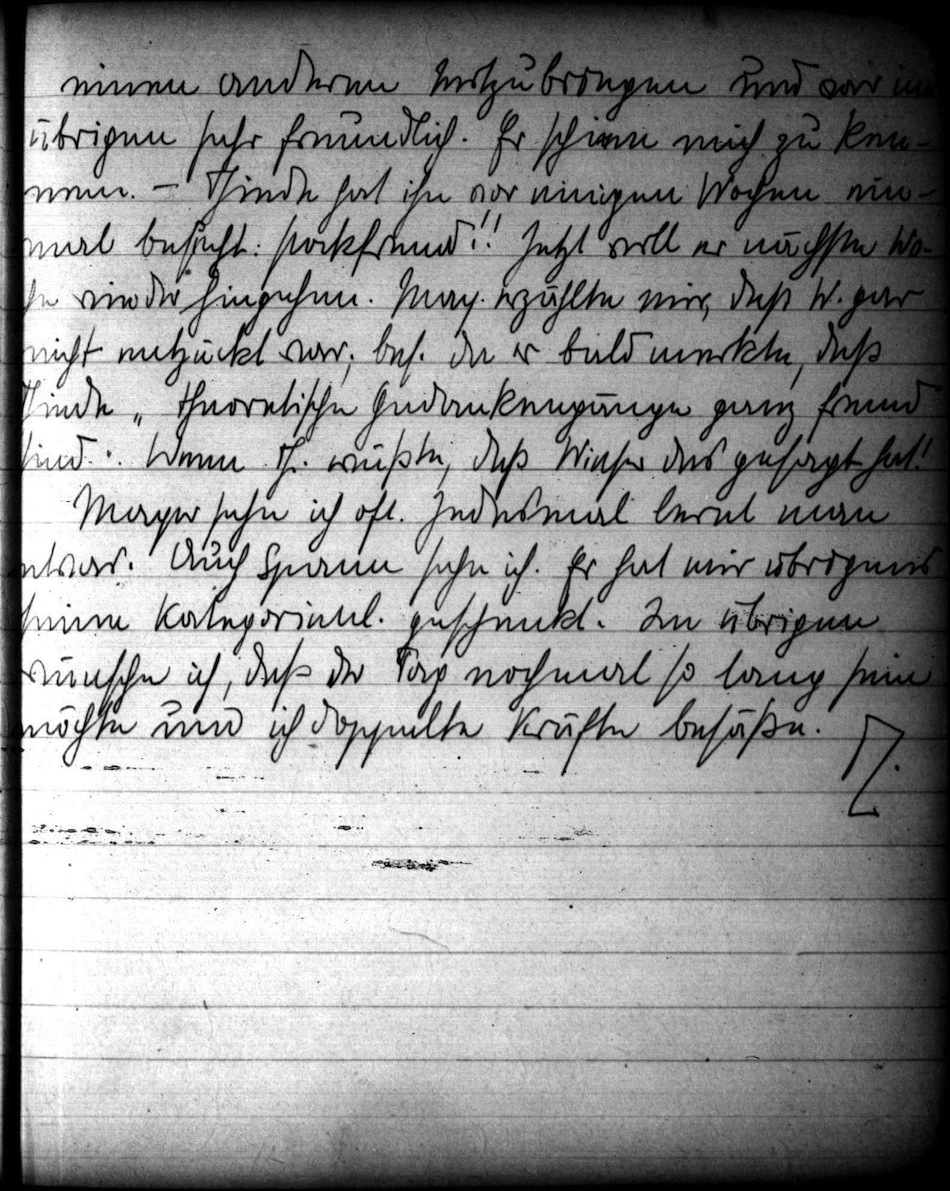 einen anderen mitzubringen und war im
übrigen sehr freundlich. Er schien mich zu ken-
nen. – Thinde hat ihn vor einigen Wochen ein-
mal besucht: stockfremd!! Jetzt soll er nächste Wo-
che wieder hingehen. May. erzählte mir, daß W. gar
nicht entzückt war, bes. da er bald merkte, daß
Thinde „theoretische Gedankengänge ganz fremd
sind." Wenn Th. wüßte, daß Wieser das gesagt hat!
Mayer sehe ich oft. Jedesmal lernt man
etwas. Auch Spann sehe ich. Er hat mir übrigens
seine Kategorienl. geschenkt. Im übrigen
wünsche ich, daß der Tag nochmal so lang sein
möchte und ich doppelte Kräfte besäße.